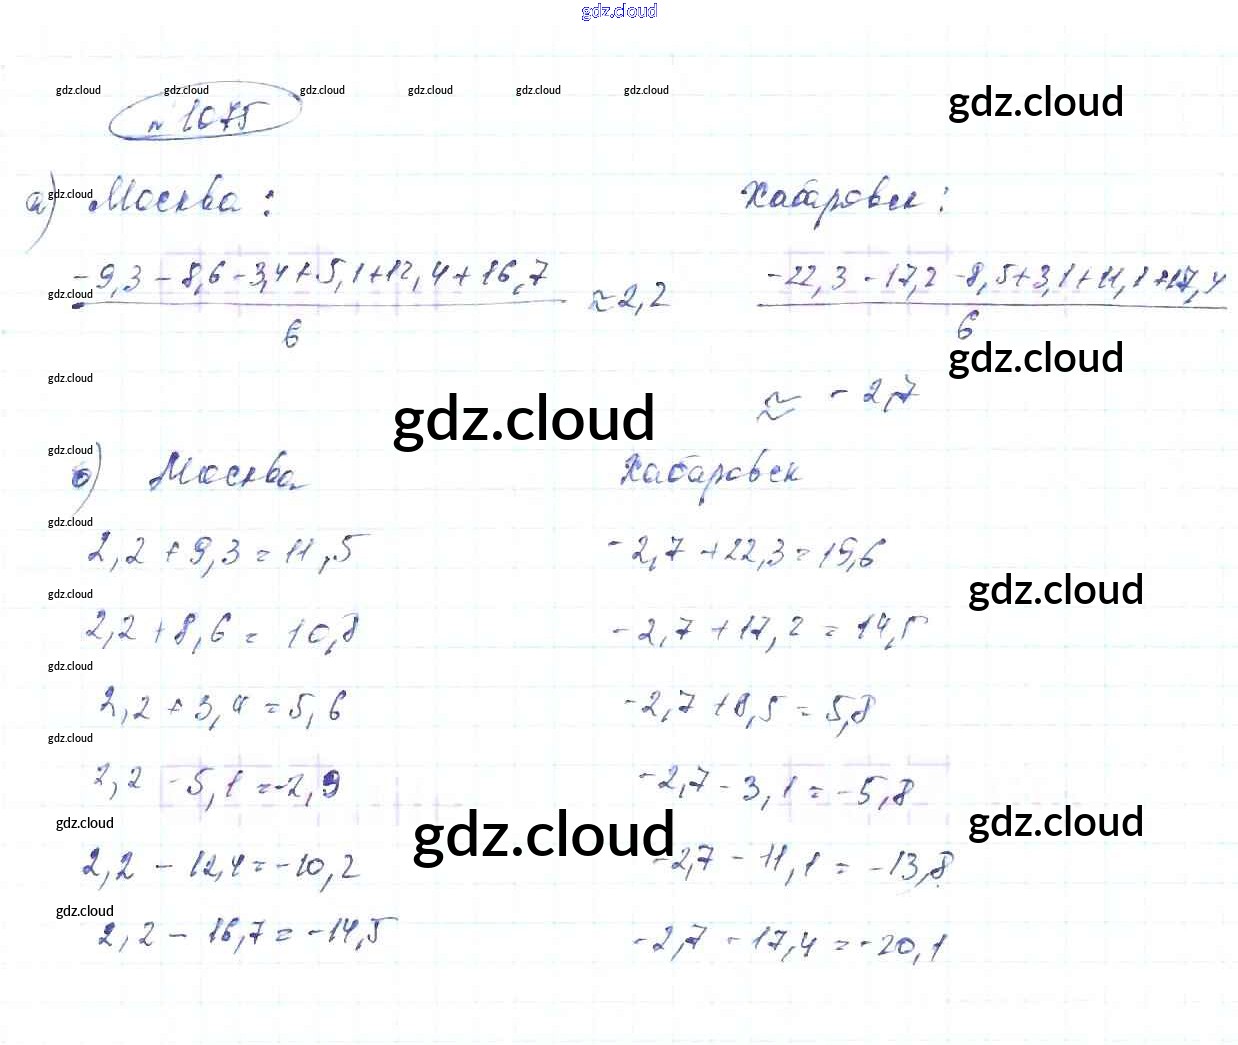 gdz.cloud
gdz.cloud gdz.cloud gdz.cloud gdz.cloud gdz.cloud gdz.cloud gdz.cloud
№ 1075
gdz.cloud
а) Москва : Хабаровск :
-9,3 - 8,6 - 3,4 + 5,1 + 12,4 + 16,7 -22,3 - 17,2 - 8,5 + 3,1 + 11,1 + 17,4
gdz.cloud
≈ 2,2
6 6
gdz.cloud
gdz.cloud
≈ - 2,7
gdz.cloud
gdz.cloud
б) Москва Хабаровск
gdz.cloud
2,2 + 9,3 = 11,5 -2,7 + 22,3 = 19,6
gdz.cloud gdz.cloud
2,2 + 8,6 = 10,8 -2,7 + 17,2 = 14,5
gdz.cloud
2,2 + 3,4 = 5,6 -2,7 + 8,5 = 5,8
gdz.cloud
2,2 - 5,1 = -2,9 -2,7 - 3,1 = -5,8
gdz.cloud gdz.cloud gdz.cloud
2,2 - 12,4 = -10,2 -2,7 - 11,1 = -13,8
gdz.cloud
2,2 - 16,7 = -14,5 -2,7 - 17,4 = -20,1